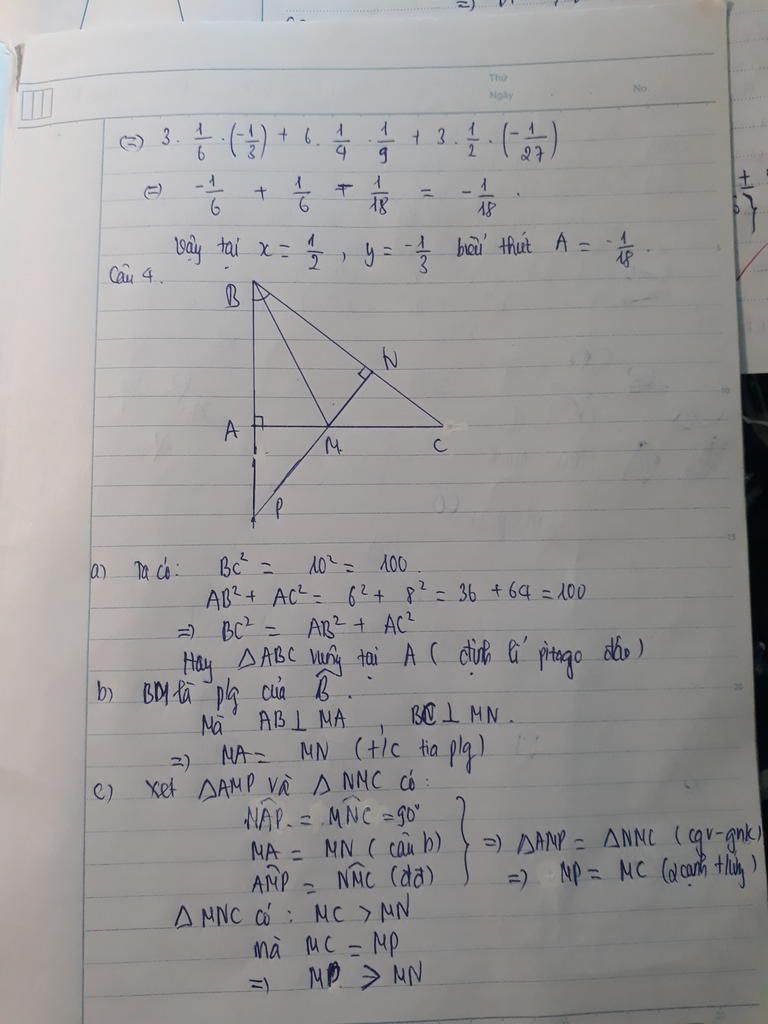 Thứ
Ngày No
(=) 3 . 1/6 . (-1/3) + 6 . 1/4 . 1/9 + 3 . 1/2 . (-1/27)
(=) -1/6 + 1/6 - 1/18 = -1/18 .
Vậy tại x = 1/2 , y = -1/3 biểu thức A = -1/18 .
Câu 4.
B
N
A
M
C
P
a) Ta có: BC² = 10² = 100 .
AB² + AC² = 6² + 8² = 36 + 64 = 100
=) BC² = AB² + AC²
Hay △ABC vuông tại A ( định lí pitago đảo)
b) BM là plg của B̂ .
Mà AB ⊥ MA , BC ⊥ MN .
=) MA = MN (t/c tia plg)
c) Xét △AMP và △NMC có :
MÂP = MN̂C = 90°
MA = MN ( câu b)
AM̂P = NM̂C (đđ)
=) △AMP = △NMC ( cgv-gnk)
=) MP = MC (2 cạnh t/ứng)
△ MNC có : MC > MN
mà MC = MP
=) MP > MN